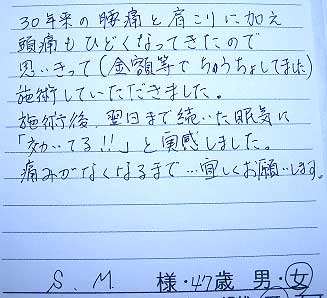 30年来の腰痛と肩こりに加え
頭痛もひどくなってきたので
思いきって(金額等でちゅうちょしてました)
施術していただきました。
施術後、翌日まで続いた眠気に
「効いてる!!」と実感しました。
痛みがなくなるまで…宜しくお願いします。
S.M. 様・47歳 男・女